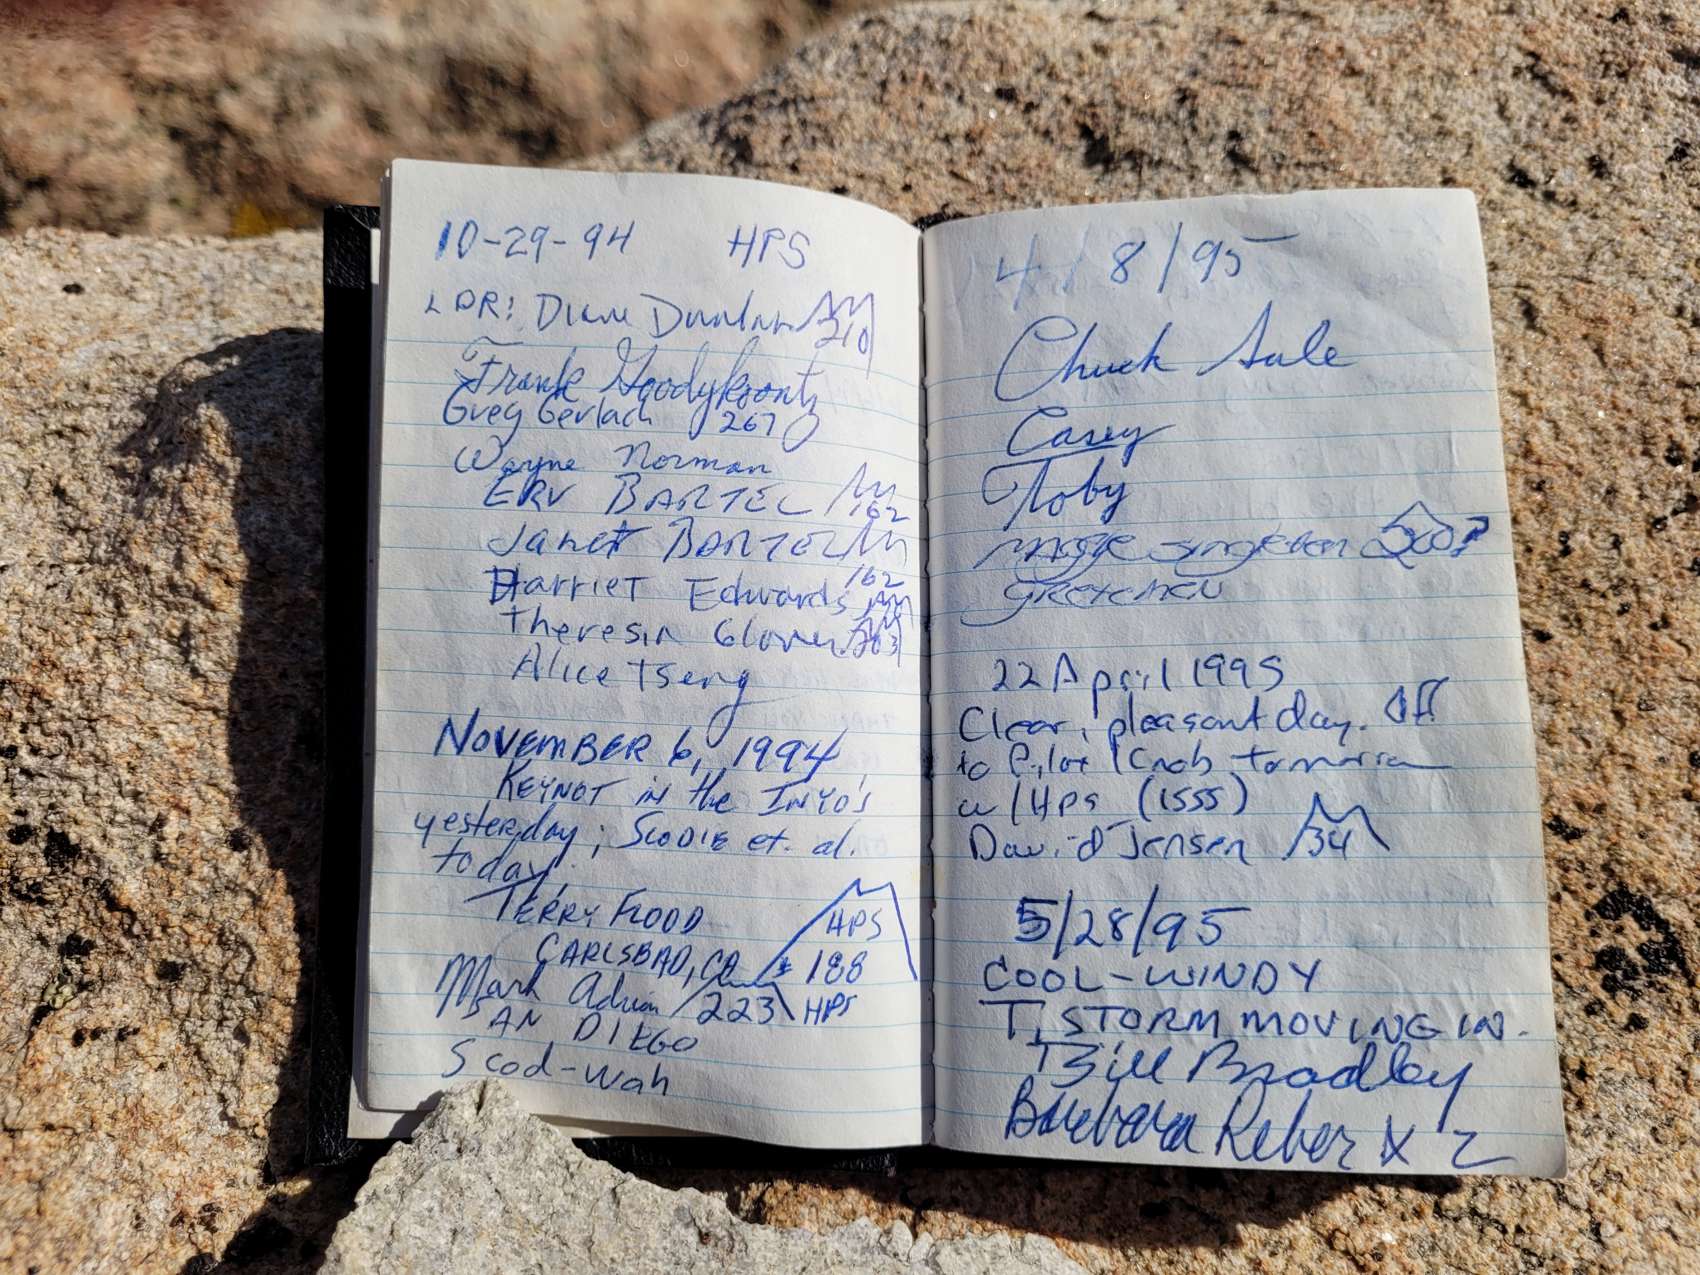 10-29-94 HPS
LDR: Diane Dunbar 210
Frank Goodykoontz
Greg Gerlach 267
Wayne Norman
ERV BARTEL 162
Janet BARTEL 162
Harriet Edwards
Theresia Glover 203
Alice Tseng
NOVEMBER 6, 1994
KEYNOT in the INYO's
yesterday; SCODIE et. al.
today.
TERRY FLOOD HPS
CARLSBAD, CA 188
Mark Adrian 223 HPS
SAN DIEGO
Scod-wah
4/8/95
Chuck Sale
Casey
Toby
500?
Gretchen
22 April 1995
Clear, pleasant day. Off
to Pilot Knob tomorrow
w/HPS (1SSS)
David Jensen 34
5/28/95
COOL-WINDY
T, STORM MOVING IN.
Bill Bradley
Barbara Reber X 2